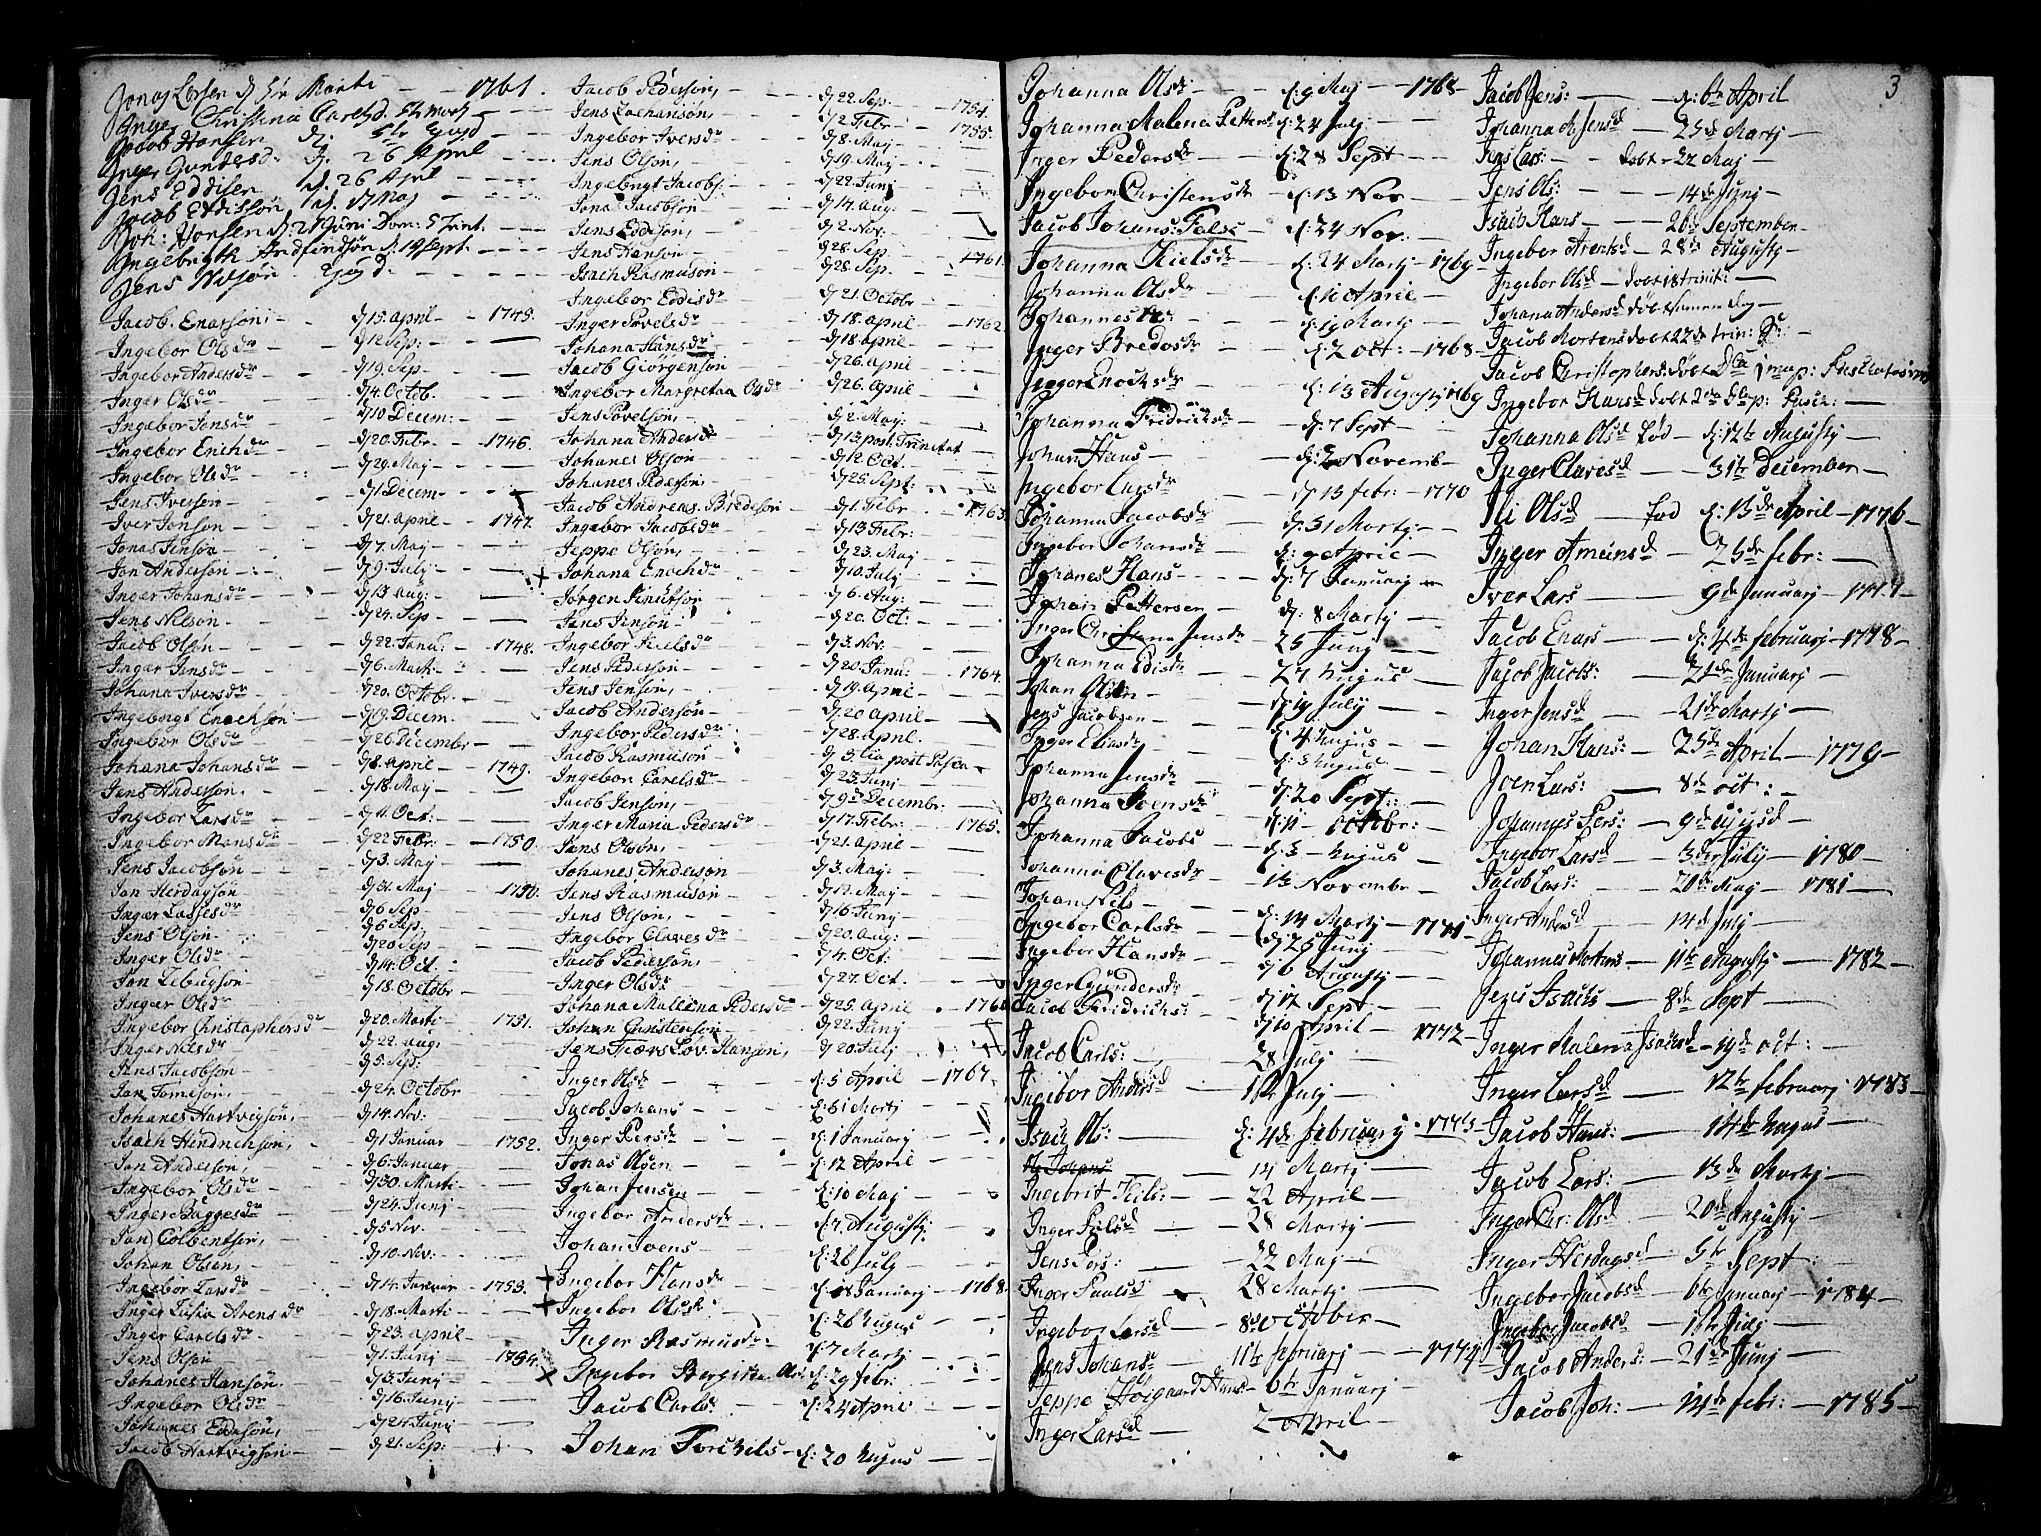 Jonas Larsen d. Marti — 1761.
Inger Christina Carlsd.
Jacob Hansen
Inger d. 26 April
Jens Eddisen d. 26 April
Jacob Eddissøn d. 17 Maj
Joh: Hansen d: 2
Ingebrigth d. 19 Sept.
Jens Nilsøn
Jacob. Enarsøn d 15. april — 1745.
Ingebor Olsdr d 12 Sep:
Ingebor Andersdr d 19. Sep.
Inger Olsdr d 4. Octob.
Ingebor Jensdr d 10 Decem:
Ingebor Erichdr d 20. Febr. — 1746.
Ingebor Olsdr d 29. Maj
Jens Iversøn d 1 Decem
Iver Jonsøn d 21. april — 1747.
Jonas Jensøn d 7. Maj
Jon Andersøn d 9. Julj
Inger Johansdr d 13 Aug:
Jens Nelson d 24. Sep
Jacob Olsøn d 22. Janu: — 1748.
Inger Jensdr d 6. Marti
Johana Iversdr d 20. Octobr.
Ingebregt Enochsøn d 19. Decem.
Ingebor Olsdr d 26. Decembr
Johana Johansdr d 8. April — 1749.
Jens Andersøn. d 18. Maj
Ingebor Larsdr d 11. Oct:
Ingebor Monsdr d 22 Febr: — 1750.
Jens Jacobsøn d 3. Maj
Jan Herdagsøn d 31. Maj — 1750.
Inger Lassesdr d 6 Sep.
Jens Olsøn d 6 Sep.
Inger Olsdr d 20 Sep
Jon d 14. Oct.
Inger Olsdr d 18. Octobr
Ingebor Christophersdr d 20. Marti — 1751.
Inger Nilsdr d 22. aug.
Jens Jacobsøn d 5. Sep.
Jan Tomesøn d 24. Octobr
Johanes Hartvigsøn, d 14. Nov.
Isach Hendrichsøn, d 1 Januar — 1752.
Jan Andersøn, d 6. Januar
Ingebor Olsdr d 30. Marti
Inger Baggesdr d 24. Junj
Jan Colbentsøn, d 5. Nov.
Johan Olsen, d 10. Nov:
Ingebor Larsdr d 14. Januar — 1753.
Inger Arensdr d 18. Marti
Inger Carelsdr d 23. april
Jens Olsøn d 1. Junj — 1754.
Johanes Hansøn d 3. Junj
Ingebor Olsdr d 16. Junj
Johanes Eddesøn, d 24. Junj
Jacob Hartvigsøn d 21. Sep:
Jacob Pedersøn, d 22. Sep. — 1754.
Jens Zachariasøn, d 2. Febr — 1755.
Ingebor Iversdr d 8. Maj
Jens Olsøn, d 19. Maj
Ingebregt Jacobs: d 22. Junj
Jonas Jacobsøn d 14. Aug.
Jens Eddesøn, d 2. Nov:
Jens Hansøn d 28. Sep — 1761.
Isach Rasmusøn d 28. Sep.
Ingebor Eddisdr d 21. Octobr
Inger Povelsdr d 18. april — 1762.
Johana Hansdr d 18. april
Jacob Giörgensøn d 26. april
Ingebor Margretaa Olsdr d 26. april
Jens Povelsøn, d 2. Maj
Johana Andersdr d 13. post Trinitat
Johanes Olsøn d 12 Oct.
Johanes Pedersøn, d 25. Sept:
Jacob Andreas Bredesøn d 1. Febr — 1763.
Ingebor Jacobsdr d 13 Febr:
Jeppe Olsøn, d 23. Maj
Johana Enochdr d 10. Julj
Jørgen Knutsøn d 6. Aug:
Jens Jensøn d 20. Oct:
Ingebor Nielsdr d 3. Nov.
Jens Pedersøn d 20. Janu: — 1764.
Jens Jensøn, d 19. April
Jacob Andersøn d 20 april
Ingebor Pedersdr d 28. april
Jacob Rasmusøn d 5. tia post Pasca
Ingebor Carelsdr d 23. Junj
Jacob Jensøn, d 9de Decembr.
Inger Maria Pedersdr d 17. Febr. — 1765.
Jens Olsøn, d 21. April
Johanes Andersøn d 3. Maj:
Jens Rasmusøn d 12. Maj
Jens Olsøn, d 16. Junj
Ingebor Clavesdr d 20. Aug:
Jacob Pedersøn, d 4. Oct:
Inger Olsdr d 27. Oct.
Johana Mallena Pedersdr d 25. april
Johan Christensøn d 22. Junj
Jens Hansøn, d 20. Julj
Inger Olsdr d: 5 April — 1767.
Jacob Johans d: 31 Martj
Inger Persdr d: 1 Januarj
Jonas Olsen d: 12 April
Johan Jensen d: 10 Maj
Ingebor Andersdr d: 7. Augustj
Johan Ivens d: 26 Julj
Ingebor Hansdr d: 18 Januarj — 1768.
Ingebor Olsdr d: 26 Augus
Inger Rasmusdr d: 7 Martj
Ingebor Bergitha Ols d: 29 febr.
Jacob Carls: d: 24 April
Johan Torchils d: 20 Augus
3
Johanna Olsdr d: 9 Maj — 1768
Johanna Malena Pettersdr d: 24 Julj
Inger Pedersdr d: 28 Sept
Ingebor Christensdr d: 13 Nov
Jacob Johans: Falsk d: 24 Nov:
Johanna Nielsdr d: 24 Martj 1769
Johanna Olsdr d: 16 April
Johannes d: 19 Martj
Inger Bredesdr d: 2 Oct: 1768
Inger Enochsdr d: 13 Augustj 1769
Johanna Fridrichsdr d: 7 Sept
Johan Hans d: 2 Novemb
Ingebor Larsdr d 13 febr: — 1770
Johanna Jacobsdr d: 31 Martj
Ingebor Johansdr d: 9 April
Johanes Hans d: 7 Januarj
Johan Pettersen d: 8 Martj
Inger Christiana Jensdr 25 Junj
Johanna Edisdr 27 Augus
Johan Olsen d: 19 Julj
Jens Jacobsen d: 4 Augus
Inger Eliasdr d: 3 Augus
Johanna Jensdr d: 20 Sept:
Johanna Ivensdr d: 11 Octobr:
Johanna Jacobs d: 3 Augus
Johanna Clavesdr 1te Novembr
Johan Nils d: 14 Martj — 1771
Ingebor Carlsdr d 26 Junj
Ingebor Hansdr d 6 Augustj
Inger Gundersdr d 12 Sept
Jacob Fridrichs: d 10 April — 1772
Jacob Carls: 28 Julj
Ingebor Andersd 1te Julj
Isach Ols: d: 4de februarj 1773
Johans 14 Martj
Ingebrit Nils: 22 April
Inger Pålsd 28 Martj
Jens Pers: 22 Maj
Inger Paulsd 28 Martj
Ingebor Larsd 8de October
Jens Johans: 11te februarj — 1774
Jeppe Holgaard Hans 6te Januarj
Inger Larsd 2 April
Jacob Jens: d: 6te April
Johanna Jensd 25de Martj
Jens Lars: døbt 22 Maj
Jens Ols: 14de Junj
Isach Hans 26de September
Ingebor Arentsd 28de Augustj
Ingebor Olsd døbt trinit:
Johana Andersd døbt samme dag
Jacob Mortens døbt 22de trin:
Jacob Christophers: døbt
Ingebor Hansd døbt
Johanna Olsd fød d: 12te Augustj
Inger Clavesd 31te December
Ili Olsd fød d: 13de April — 1776
Inger Amunsd 25de febr:
Iver Lars 9de Januarj — 1777
Jacob Enars d: 4de februarj — 1778
Jacob Jacobs: 21de Januarj
Inger Jensd 21de Martj
Johan Hans: 25de April — 1779
Joen Lars: 8de oct:
Johannes Pers: 9de
Ingebor Larsd 3die July — 1780
Jacob Lars: 20de Maj — 1781
Inger Andersd 14de July
Johannes Mortens 11te Augustj — 1782
Jens Isachs 8de Sept
Inger Malena Isachsd 19de oct:
Inger Larsd 12te februarj 1783
Jacob Hans: 14de Augus
Jacob Lars: 13de Martj
Inger Chr: Olsd 20de Augustj
Inger Herdagsd 5te Sept
Ingebor Jacobsd 6te Januarj — 1784
Ingebor Jacobsd 1te Junj
Jacob Anders: 21de Junj
Jacob Joh: 14de febr: — 1785